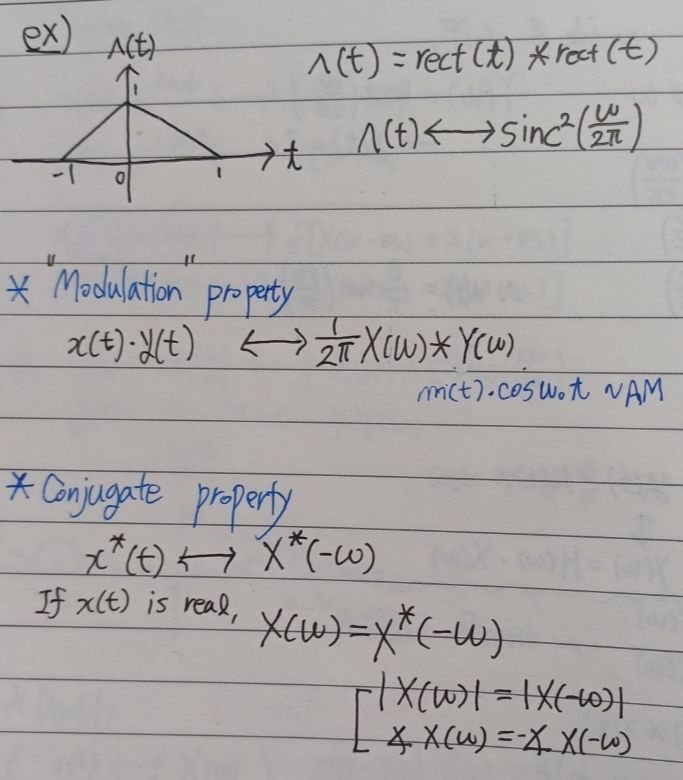 ex) Λ(t)
Λ(t) = rect(t) * rect(t)
1
Λ(t) ⟷ sinc²(ω/2π)
-1 0 1 t
* "Modulation" property
x(t)·y(t) ⟷ 1/2π X(ω) * Y(ω)
m(t)·cosω₀t ~AM
* Conjugate property
x*(t) ⟷ X*(-ω)
If x(t) is real, X(ω) = X*(-ω)
|X(ω)| = |X(-ω)|
∡ X(ω) = -∡ X(-ω)